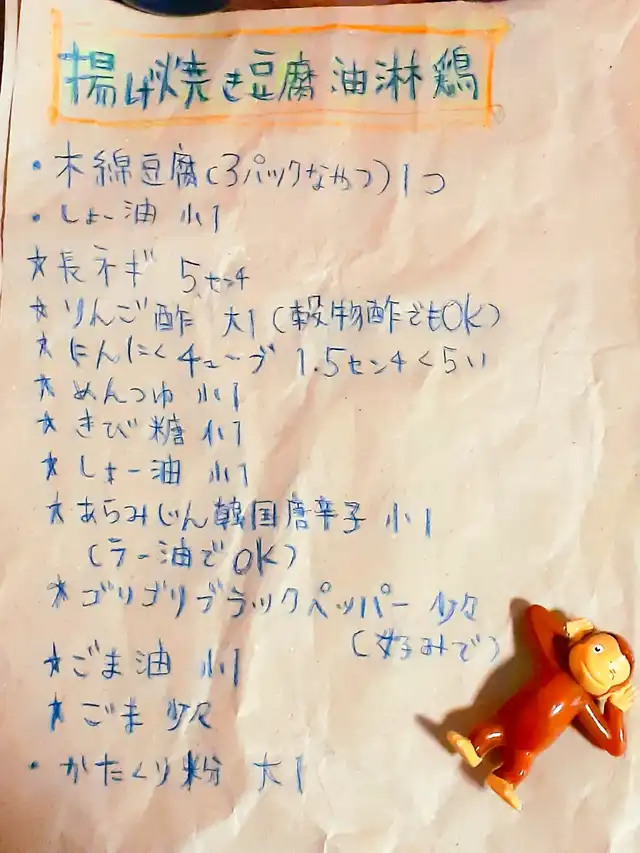 揚げ焼き豆腐油淋鶏
・木綿豆腐(3パックなやつ)1つ
・しょー油 小1
★長ネギ 5センチ
★りんご酢 大1(穀物酢でもOK)
★にんにくチューブ 1.5センチくらい
★めんつゆ 小1
★きび糖 小1
★しょー油 小1
★あらみじん韓国唐辛子 小1
(ラー油でOK)
★ゴリゴリブラックペッパー 少々
(好みで)
★ごま油 小1
★ごま 少々
・かたくり粉 大1